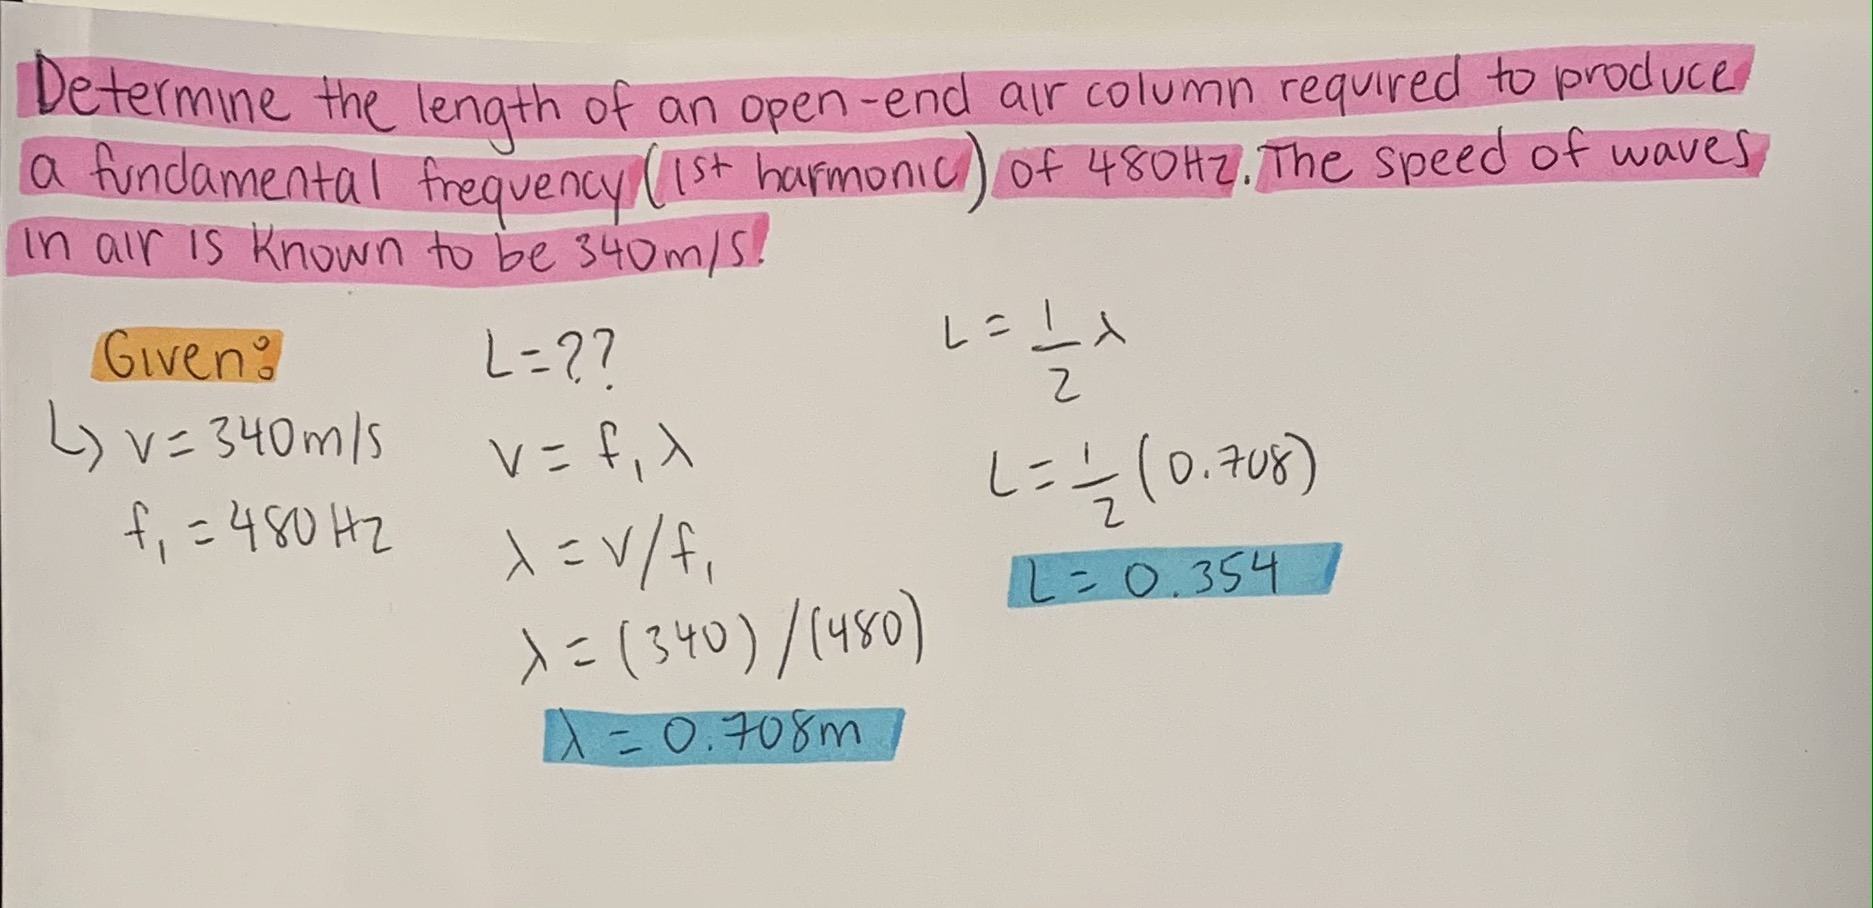 Determine the length of an open-end air column required to produce
a fundamental frequency (1st harmonic) of 480Hz. The speed of waves
in air is known to be 340m/s!
Given:
↳ v = 340m/s
f₁ = 480Hz
L = ??
v = f₁λ
λ = v/f₁
λ = (340)/(480)
λ = 0.708m
L = 1/2 λ
L = 1/2 (0.708)
L = 0.354